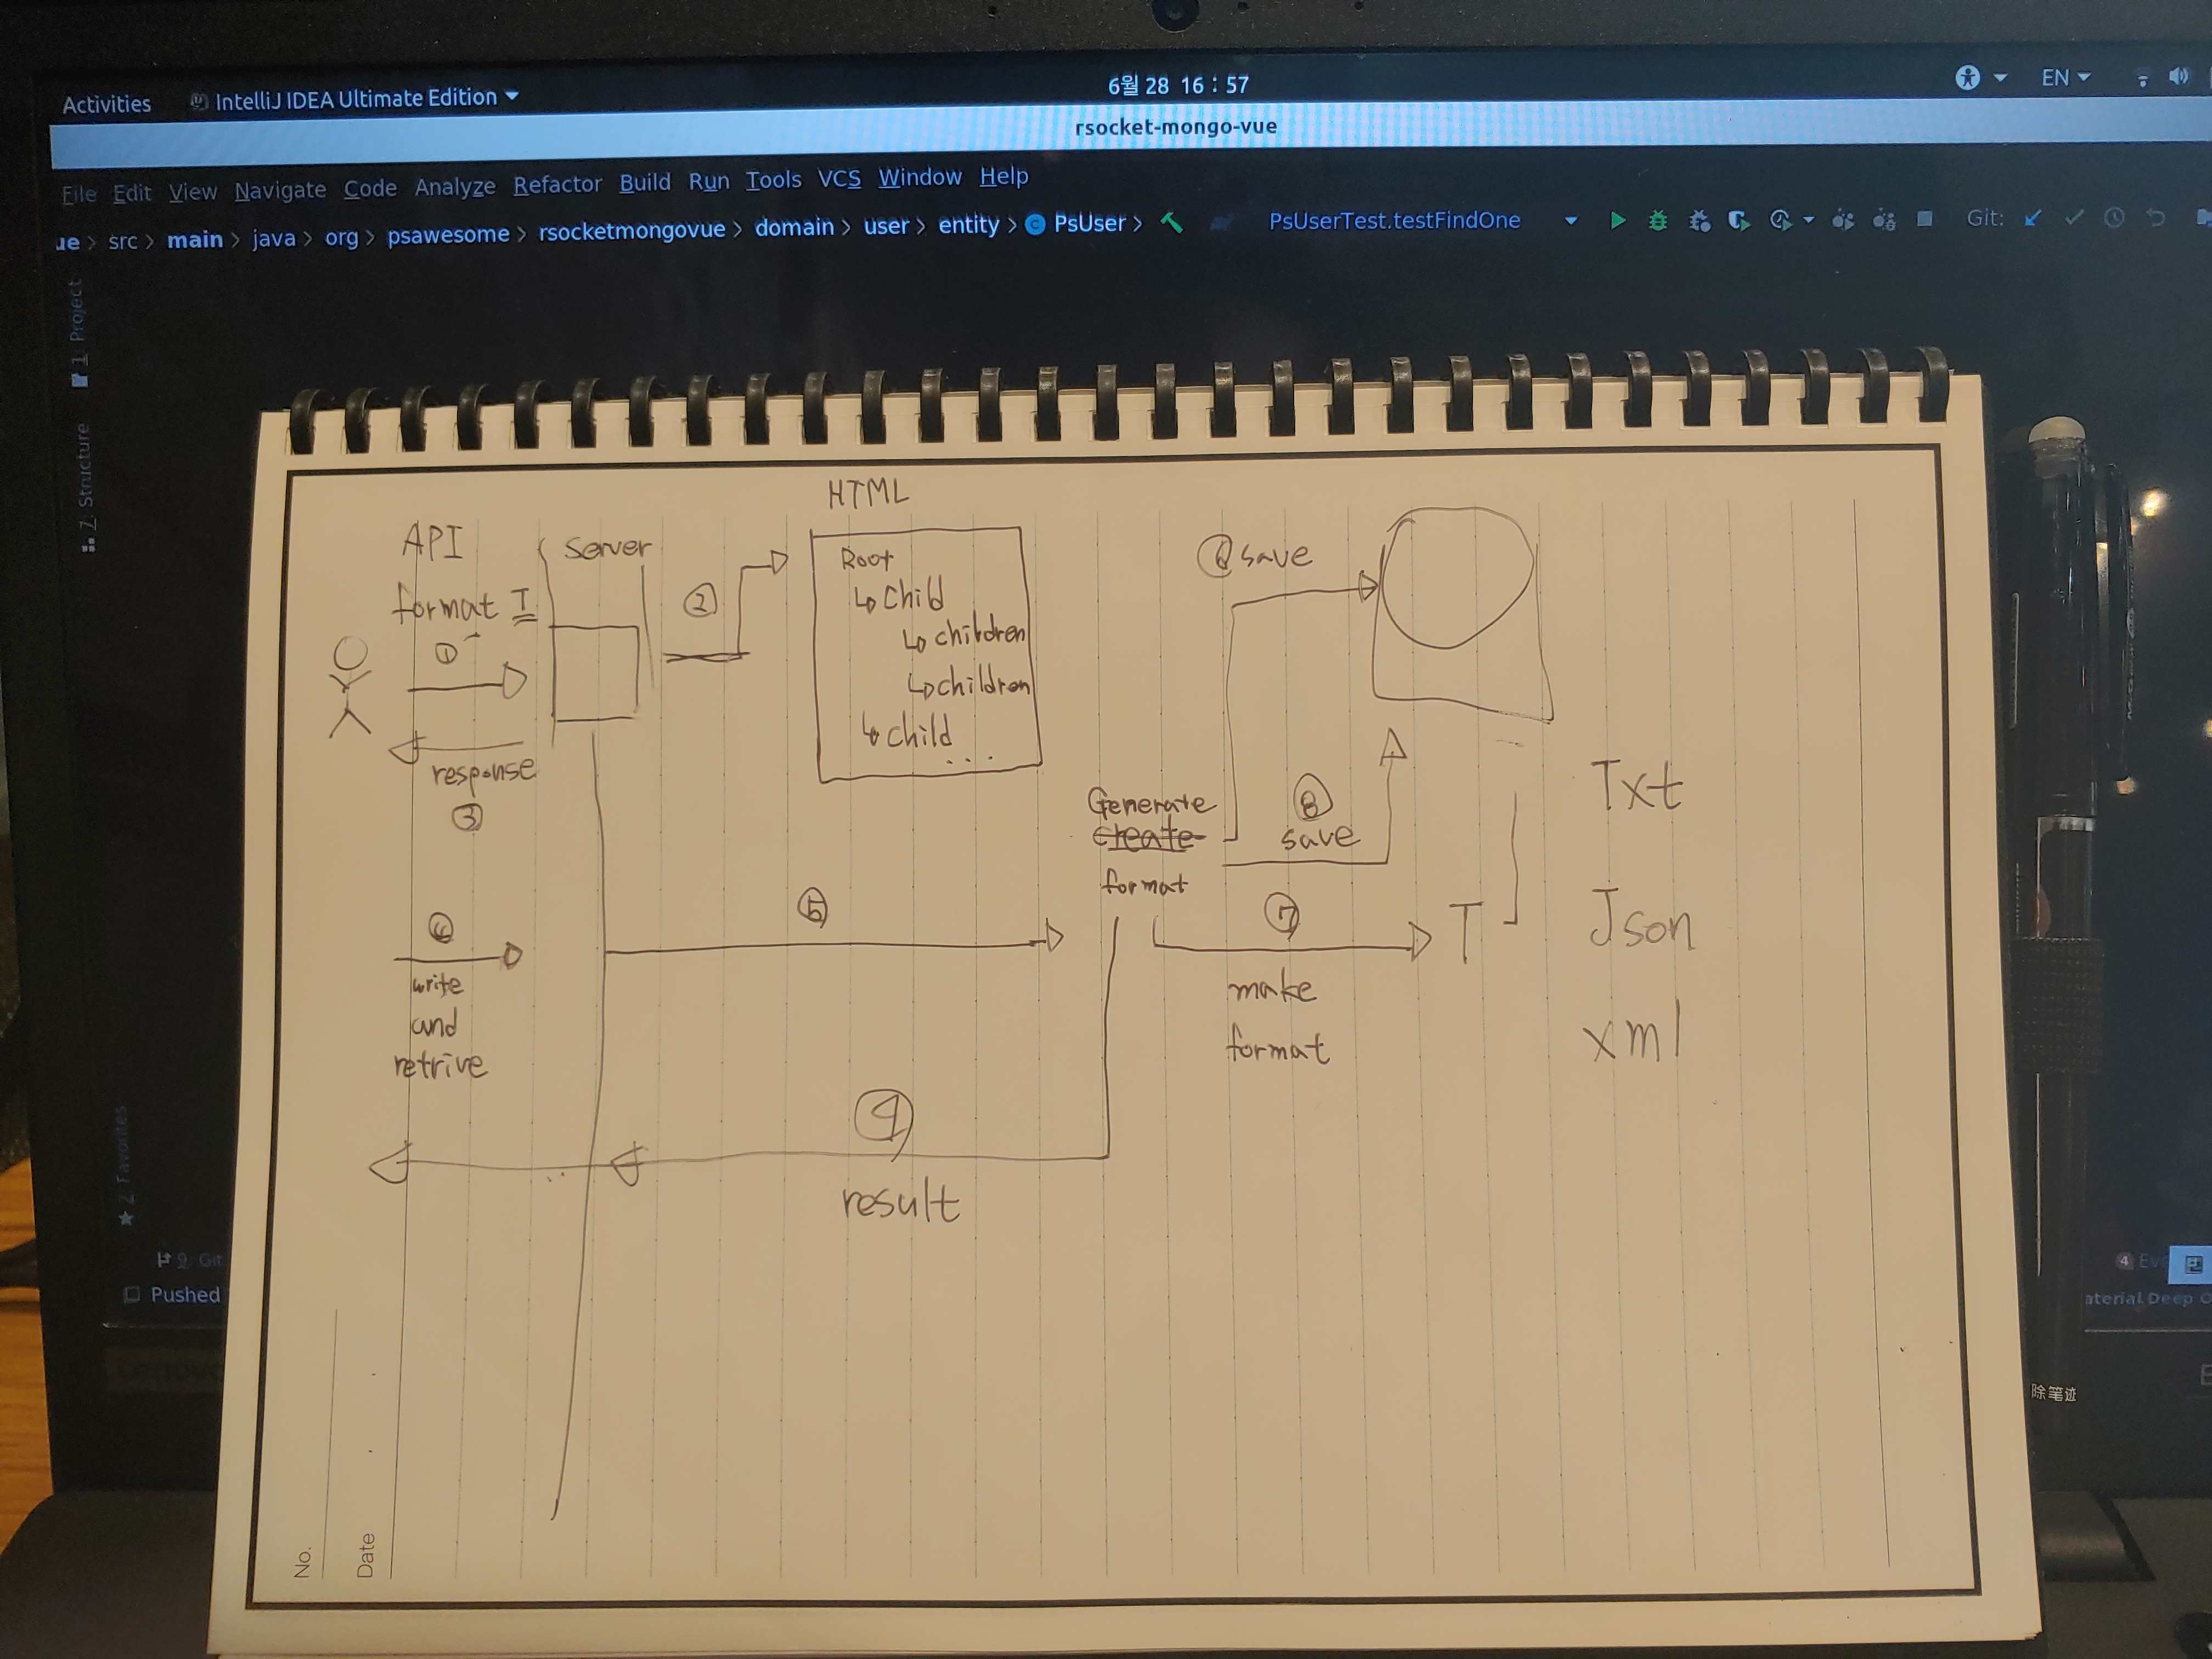 Activities IntelliJ IDEA Ultimate Edition 6월 28 16 : 57 EN
rsocket-mongo-vue
File Edit View Navigate Code Analyze Refactor Build Run Tools VCS Window Help
ue > src > main > java > org > psawesome > rsocketmongovue > domain > user > entity > PsUser > PsUserTest.testFindOne Git:
1: Project
7: Structure
2: Favorites
9: Git
Pushed
4
aterial Deep O
Lenovo
除笔迹
HTML
API
format I
①
response
③
Server
②
Root
↳ child
↳ children
↳ children
↳ child
...
⑥ save
Generate
create
format
⑧
save
Txt
④
write
and
retrive
⑤
⑦
make
format
T
Json
xml
⑨
result
No.
Date